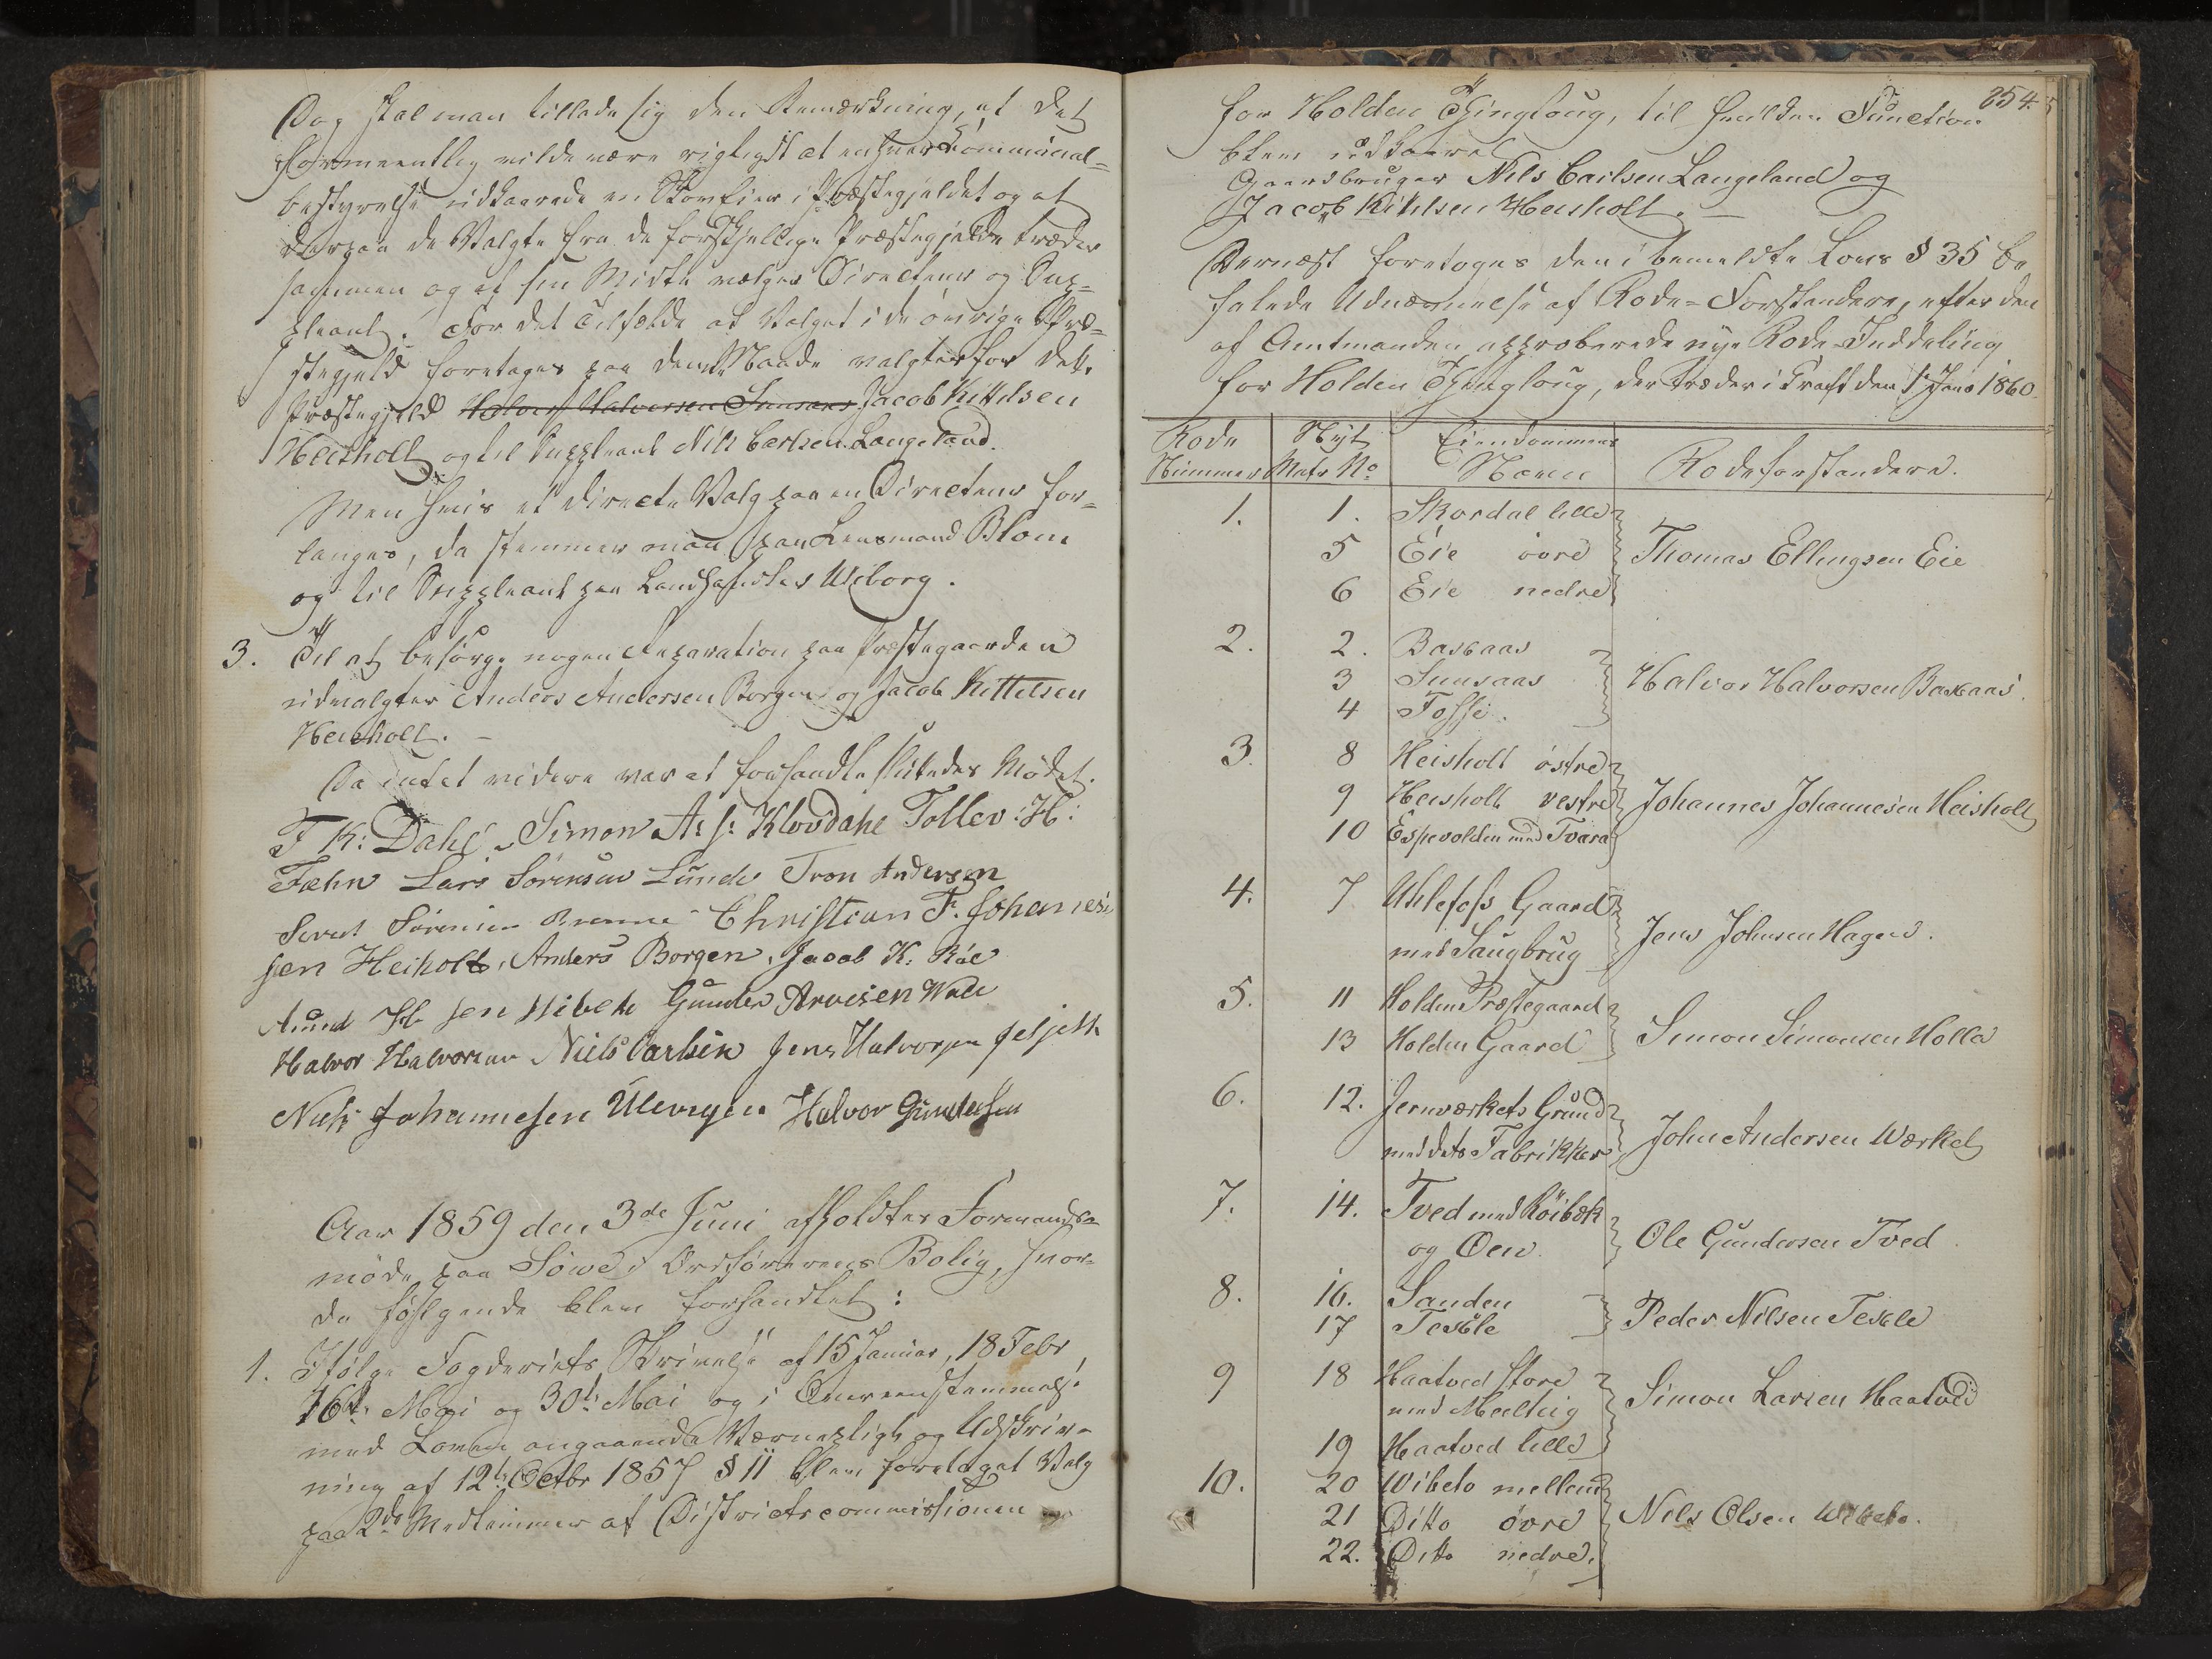 Dog skal man tillade sig den Bemærkning, at det
formeentlig vilde være rigtigst at enhver Communal-
bestyrelse udkaarede en Skovkier i Præstegjeldet og at
derpaa de Valgte fra de forskjellige Præstegjelde træder
sammen og af sin Midte vælger Directeur og Sup-
pleant. For det Tilfælde at Valget i de øvrige Præ-
stegjeld foretages paa denne Maade valgtes for dette
Præstegjeld Halvor Halvorsen Sunsaas Jacob Kittelsen
Heisholt og til Suppleant Nils Carlsen Langeland.
Men hvis et directe Valg paa en Directeur for-
langes, da stemmer man paa Lensmand Blom
og til Suppleant paa Landhandler Wiborg.
3. Til at besørge nogen Reparation paa Præstegaarden
udvalgtes Anders Andersen Borgen og Jacob Kittelsen
Heisholt. –
Da intet videre var at forhandle sluttedes Mødet.
T K: Dahl Simon A: S: Klovdahl Tollev: H:
Fæhn Lars Sørensen Lunde Tron Andersen
Sørensen Christian F. Johannes
sen Heiholt, Anders Borgen, Jacob K.
Amund H sen Wibeto Gunder Arvesen
Halvor Halvorsen Niels Carlsen Jens Halvorsen
Niels Johannesen Ulevegen Halvor Gundersen
Aar 1859 den 3de Juni afholdtes Formands-
møde paa Søwe, Ordførerens Bolig, hvor-
da følgende blev forhandlet:
1. Ifølge Fogderiets Skrivelse af 15 Januar, 18 Febr
16de Mai og 30te Mai og i Overeenstemmelse
med Loven angaaende Værnepligt og Udskriv-
ning af 12te Octbr 1857 § 11 blev foretaget Valg
paa 2de Medlemmer af Districtscommissionen
254
for Holden Thinglaug, til hvilken Function
blev udkaaret
Gaardbruger Nils Carlsen Langeland og
Jacob Kittelsen Heisholt. –
Dernæst foretoges den i bemeldte Lovs § 35 be
falede Udnævnelse af Rode-Forstandere, efter den
af Amtmanden approberede nye Rode-Inddeling
for Holden Thinglaug, der træder i Kraft den 1 Janr 1860.
Rode Nummer | Nyt Matr No | Eiendommens Navn | Rodeforstandere.
1. 1. Skordal lille
5 Eie øvre Thomas Ellingsen Eie
6 Eie nedre
2. 2. Baxaas
3 Sunsaas Halvor Halvorsen Baxaas.
4 Fosse.
3. 8 Heisholt østre
9 Heisholt vestre Johannes Johannesen Heisholt
10 Espevolden med Tvara
4. 7 Uhlefos Gaard
med Saugbrug Jens Johnsen Hagen.
5. 11 Holden Præstegaard
13 Holden Gaard Simon Simonsen Holla
6. 12. Jernværkets Grund
med dets Fabrikker John Andersen Værket
7. 14. Tved med Röibek
og Öen. Ole Gundersen Tved.
8. 16. Sanden
17 Texle Peder Nilsen Texle
9 18 Haatved store
med Mælteig Simon Larsen Haatved
19 Haatved lille
10. 20 Wibeto mellem
21 Ditto øvre Nils Olsen Wibeto.
22. Ditto nedre.